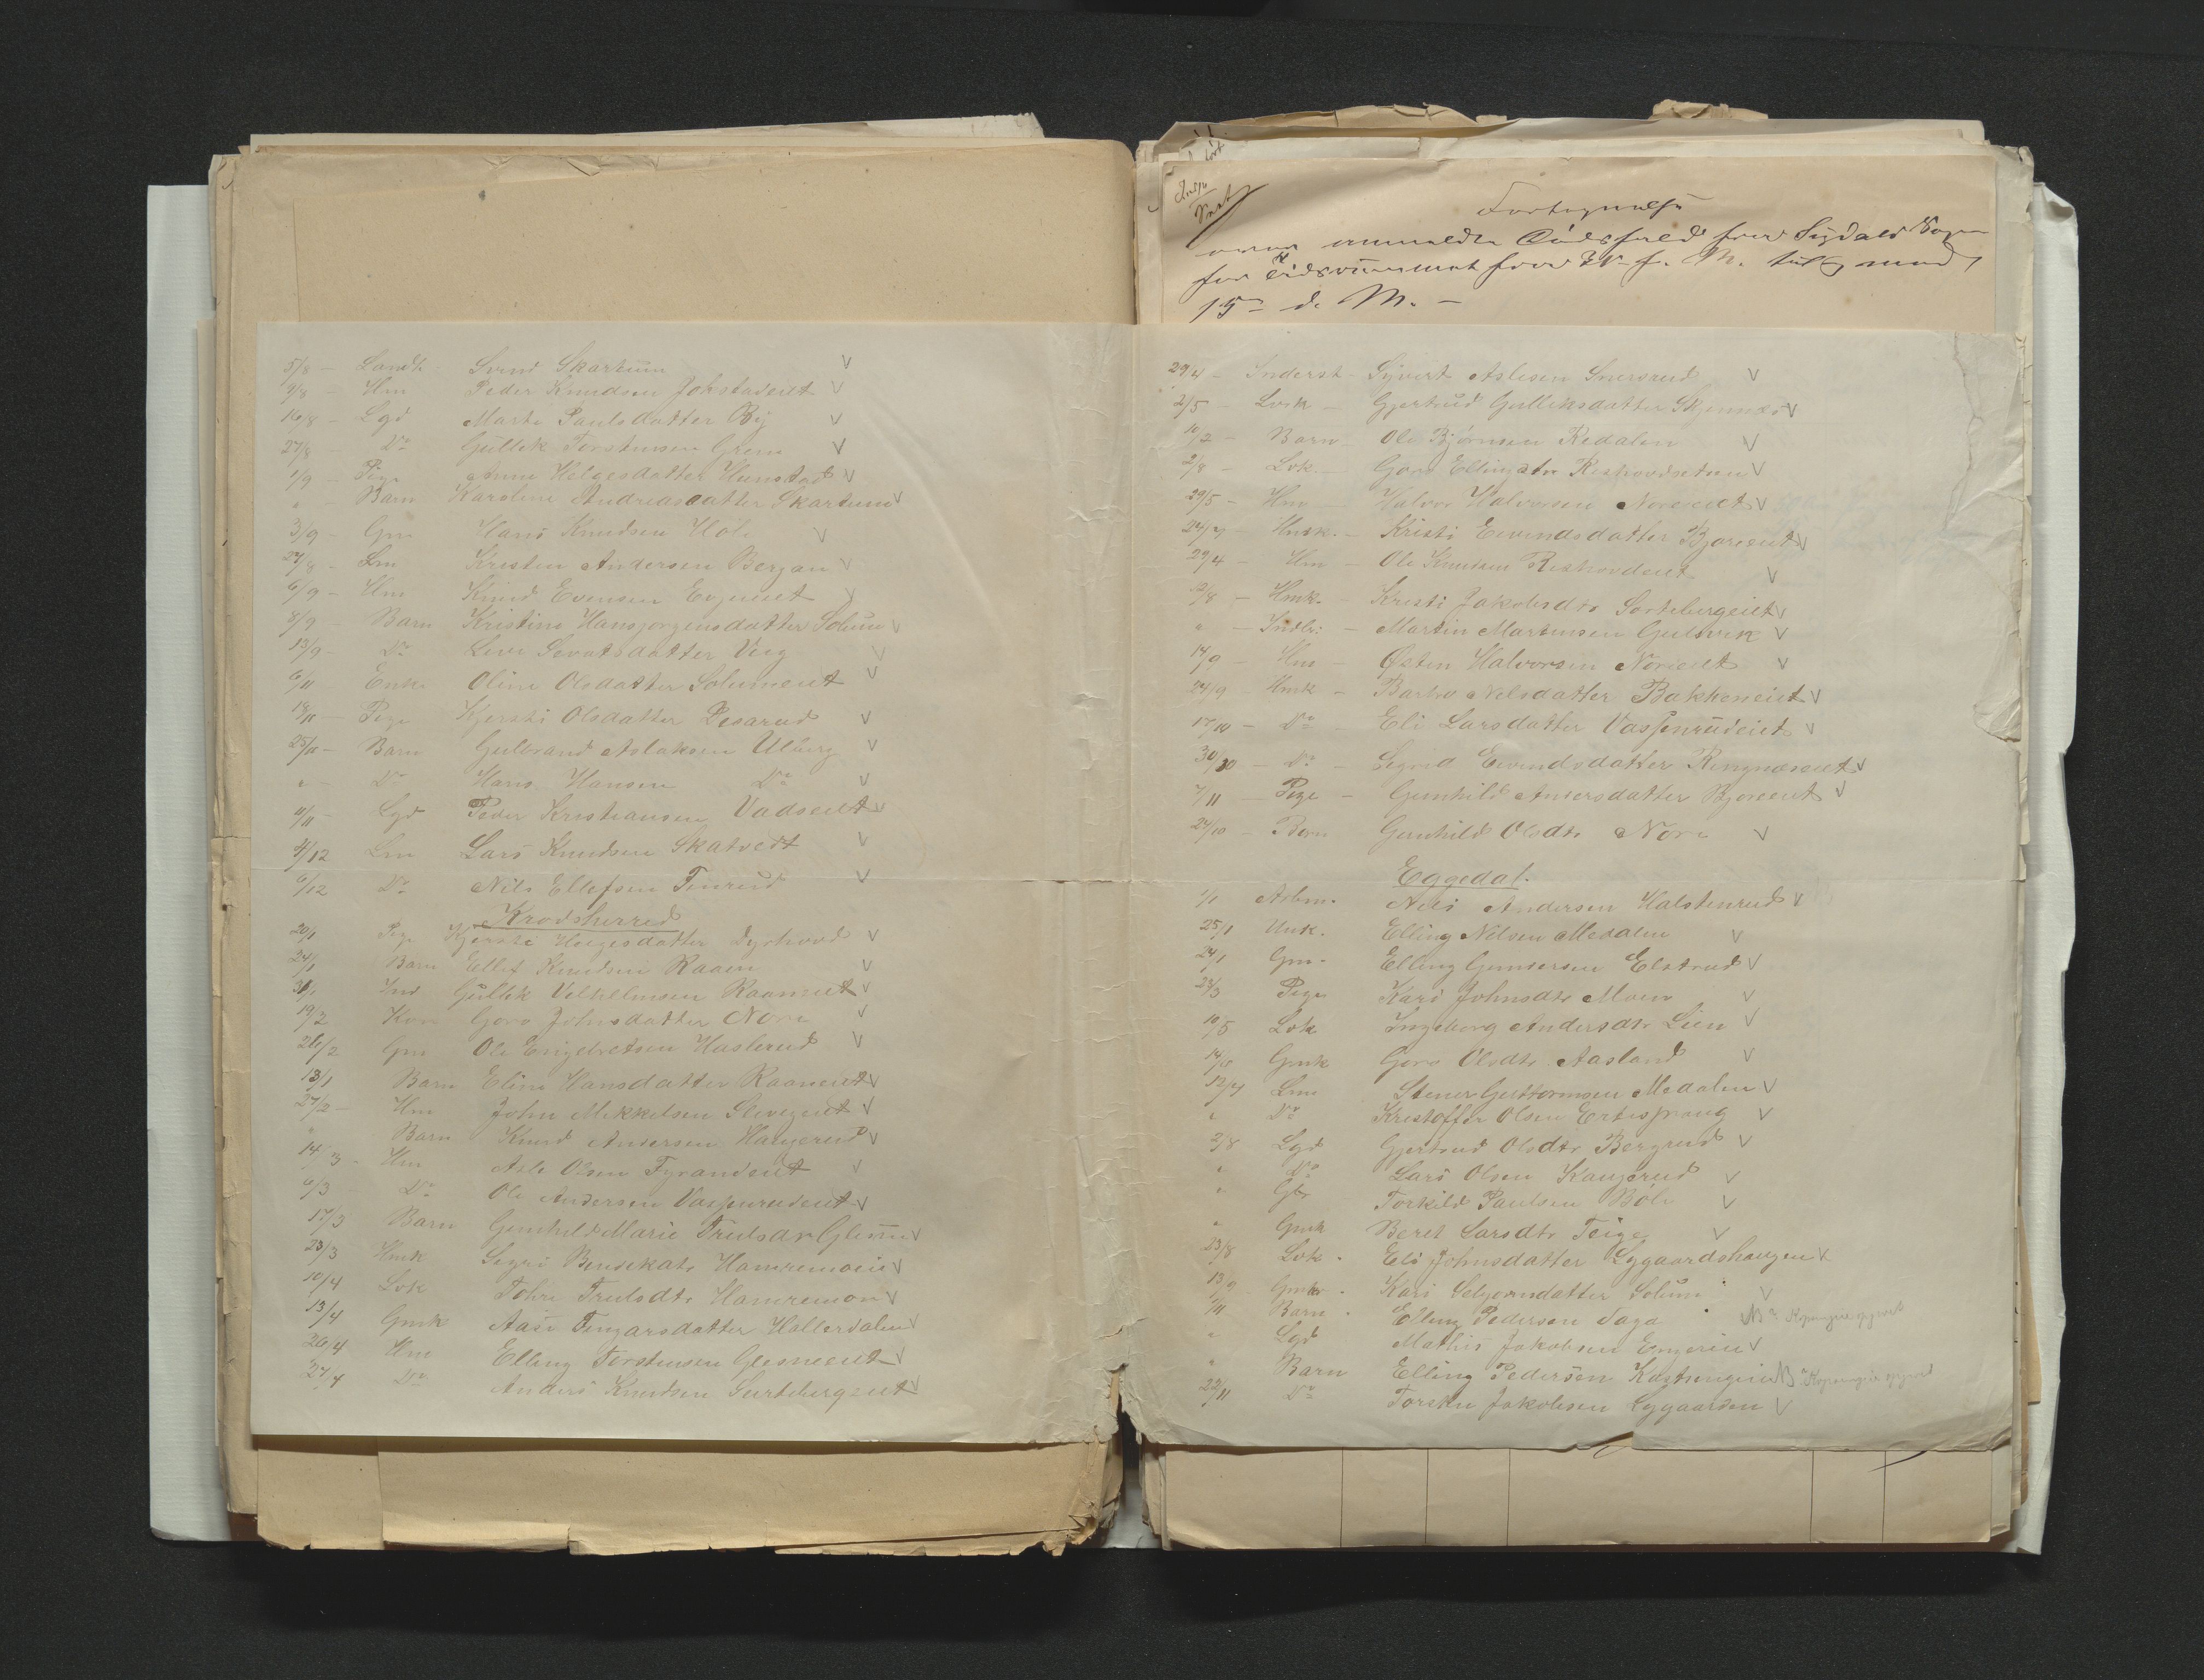 5/8 – Landh. Svend Skartum V
9/8 – Hm Peder Knudsen Johstadeiet V
16/8 – Lgd Marte Paulsdatter By V
27/8 Do Gullik Torstensen Grem V
1/9 – Pige Anne Helgesdatter Hunstad V
" – Barn Karoline Andreasdatter Skartum V
3/9 – Gm Hans Knudsen Hole V
27/8 – Lm Kresten Andersen Bergan V
6/9 – Hm Knud Evensen Evjueiet V
8/9 – Barn Kristine Hansjorgensdatter Solum V
13/9 – Do Levi Sevatsdatter Veeg V
6/11 Enke Oline Olsdatter Solumeiet V
18/11 – Pige Kjersti Olsdatter Desarud V
25/11 – Barn Gulbrand Aslaksen Ulberg V
" – Do Hans Hansen Do V
11/11 – Lgd Peder Kristiansen Vadseiet V
4/12 Lm Lars Knudsen Skatvedt V
6/12 Do Nils Ellefsen Finrud V
Krodsherred
20/1 Pige Kjersti Helgesdatter Dyrhovd V
24/1 Barn Ellef Knudsen Raaen V
31/1 Ind Gullik Velhelmsen Raaeneiet V
19/2 Kone Goro Johnsdatter Nore V
26/2 Gm Ole Engebretsen Haslerud V
13/1 Barn Eline Hansdatter Raaneiet V
27/2 – Hm John Mikkelsen Slevigeiet V
" Barn Knud Andersen Haugerud V
14/3 – Hm Asle Olsen Fyrandeiet V
6/3 Do Ole Andersen Vassenrudeiet V
17/3 Barn Gunhild Marie Trulsdr Glesne V
23/3 Hmk Sigri Bendikdtr Hamremoeie V
10/4 Lvk Tohre Trulsdtr Hamremoen V
13/4 Gmk Aase Fingarsdatter Hallerdalen V
26/4 Hm Elling Torstensen Glesneeiet V
27/4 Do Anders Knudsen Surtebergeiet V
Forteg­nelse
over anmeldte Dødsfald fra Sigdals Sogn
for Tidsrummet fra f. M. til og med
15de d. M. –
29/4 – Inderst – Syvert Aslesen Snersrud V
2/5 – Lvk – Gjertrud Gulliksdatter Skjennes V
10/2 – Barn – Ole Bjørnsen Redalen V
2/8 – Lvk – Goro Ellingsdtr Reshovdseteren V
29/5 – Hm – Halvor Halvorsen Noreeiet V
24/7 – Hmsk. – Kristi Eivindsdatter Bjoreeiet V
29/4 – Hm – Ole Knudsen Reshovdeiet V
12/8 – Hmk. – Kristi Jakobsdtr Sortebergeiet V
" – Indlr: – Martin Martinsen Gulsvik V
14/9 – Hm – Østen Halvorsen Noreeiet V
24/9 – Hmk – Barbro Nelsdatter Bakkeneiet V
17/10 – Do – Eli Larsdatter Vassenrudeiet V
30/10 – Do – Sigrid Eivindsdatter Ringneseiet V
7/11 – Pige – Gunhild Andersdatter Bjoreeiet V
24/10 – Barn Gunhild Olsdtr Nore V
Eggedal.
1/1 Arbm. Nils Andersen Halstenrud V
25/1 Unk. Elling Nilsen Medalen V
24/1 Gm. Elling Gunnersen Elstrud V
23/3 Pige Kari Johnsdtr Moen V
10/5 Lvk Ingeborg Andersdtr Lien V
14/6 Gmk Goro Olsdtr Aasland V
12/7 Lm Stener Guttormsen Medalen V
" Do Kristoffer Olsen Ertespraug V
2/8 Lgd Gjertrud Olsdtr Bergrud V
" Do Lars Olsen Kaugerud V
" Torkild Paulsen Bøle V
" Gmk Beret Larsdtr Teige V
23/8 Lvk. Eli Johnsdatter Lygaardshaugen V
13/9 Gmk. Kari Selgjorndatter Solum V
1/11 Barn. Elling Pedersen Saga
" Lgd Mathis Jakobsen Engerin V
" Barn Elling Pedersen
22/11 Do Torsten Jakobsen Lygaarden V